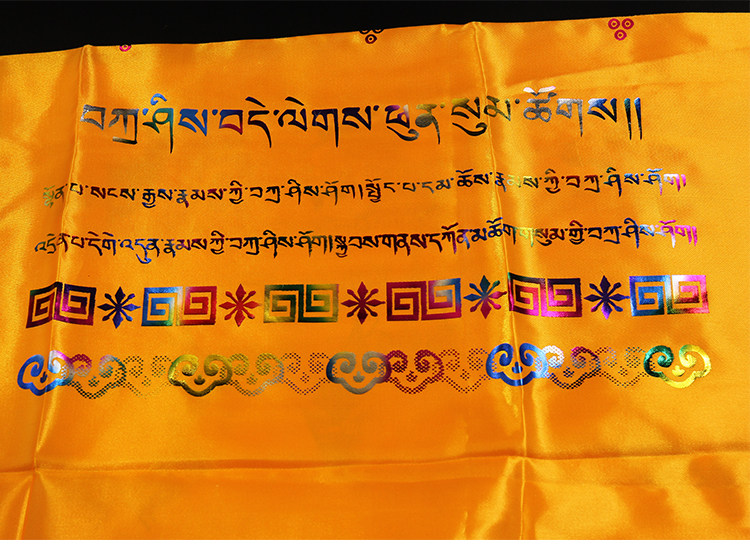 བཀྲ་ཤིས་བདེ་ལེགས་ཕུན་སུམ་ཚོགས།།
སྟོན་པ་སངས་རྒྱས་རྣམས་ཀྱི་བཀྲ་ཤིས་ཤོག།སྤྱོང་པ་དམ་ཆོས་རྣམས་ཀྱི་བཀྲ་ཤིས་ཤོག།
འདྲེན་པ་དགེ་འདུན་རྣམས་ཀྱི་བཀྲ་ཤིས་ཤོག།སྐྱབས་གནས་དཀོན་མཆོག་གསུམ་གྱི་བཀྲ་ཤིས་ཤོག།